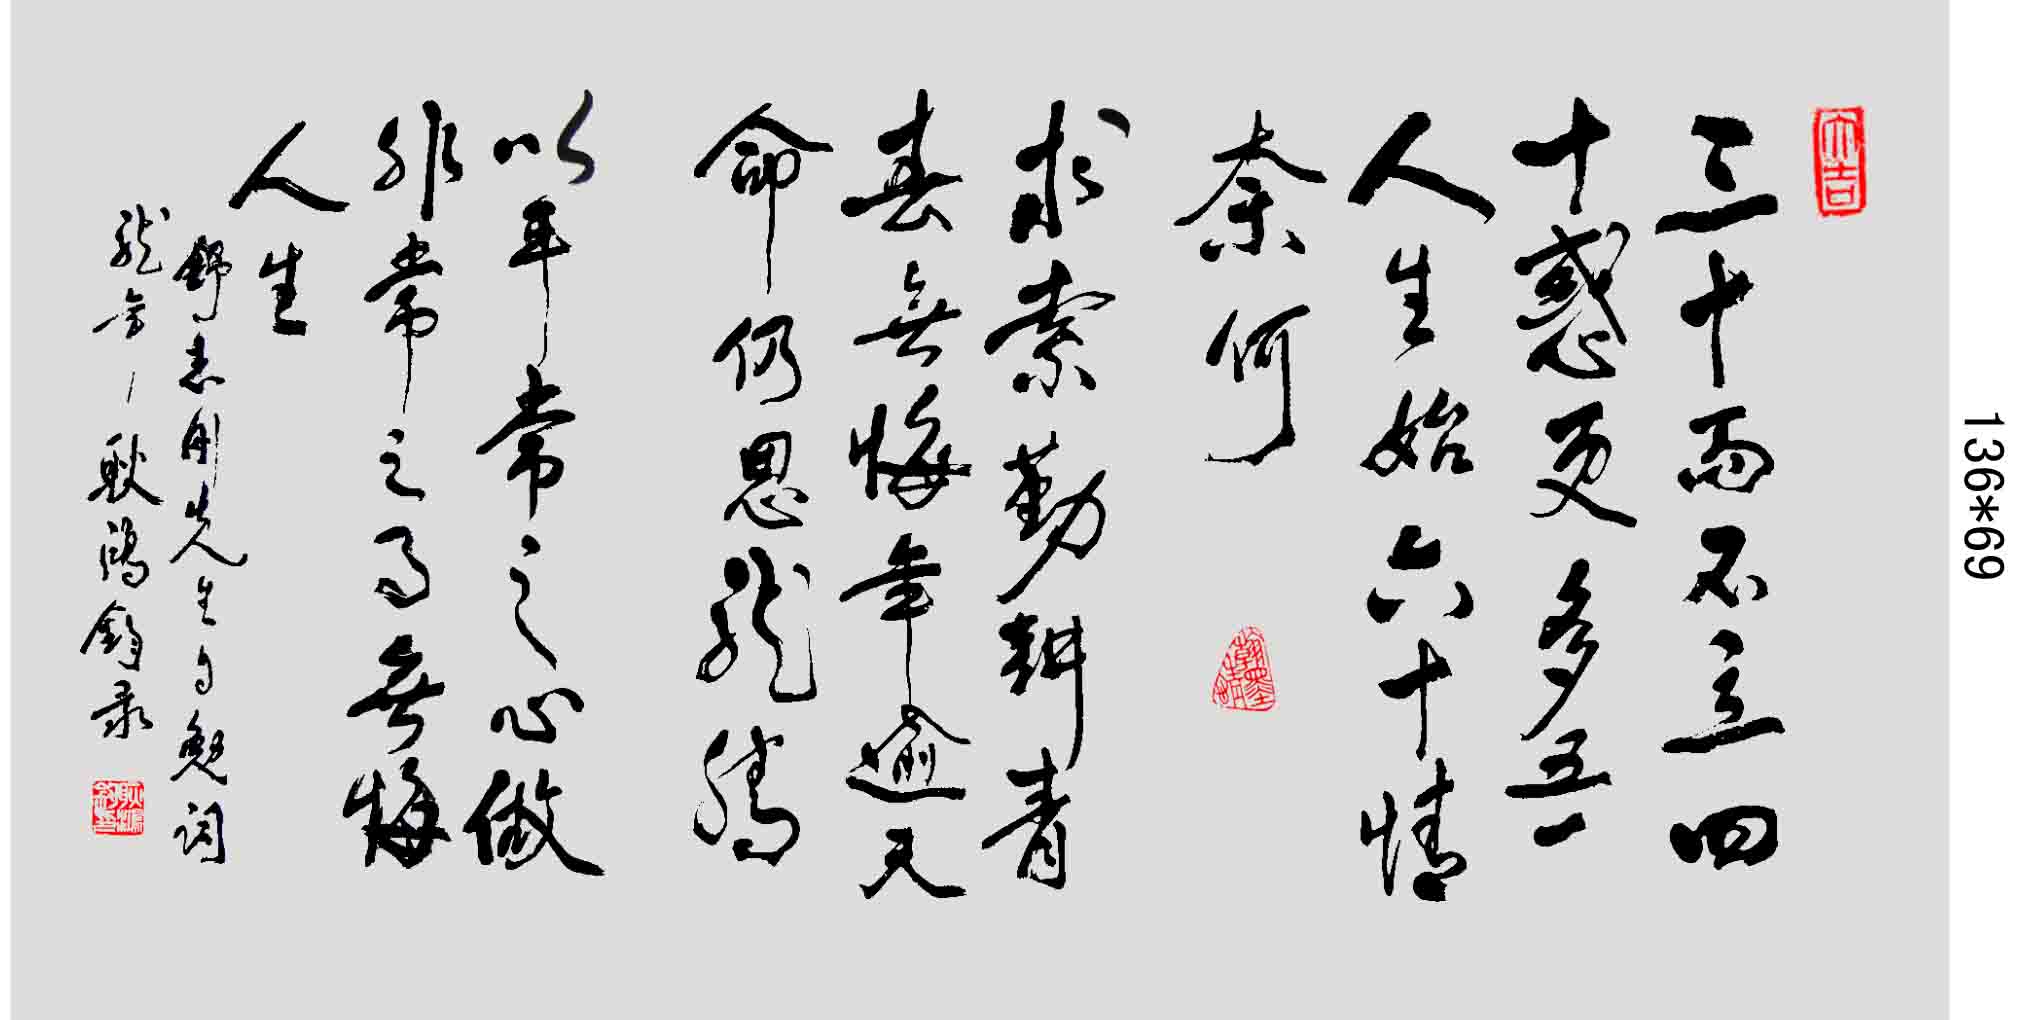 大吉
三十而不立四
十惑更多五一
人生始六十情
奈何
求索勤耕青
春无悔年逾天
命仍思龙腾
以平常之心做
非常之事无悔
人生
舒志刚先生自勉词
龙方 耿鸿钧录
136*69